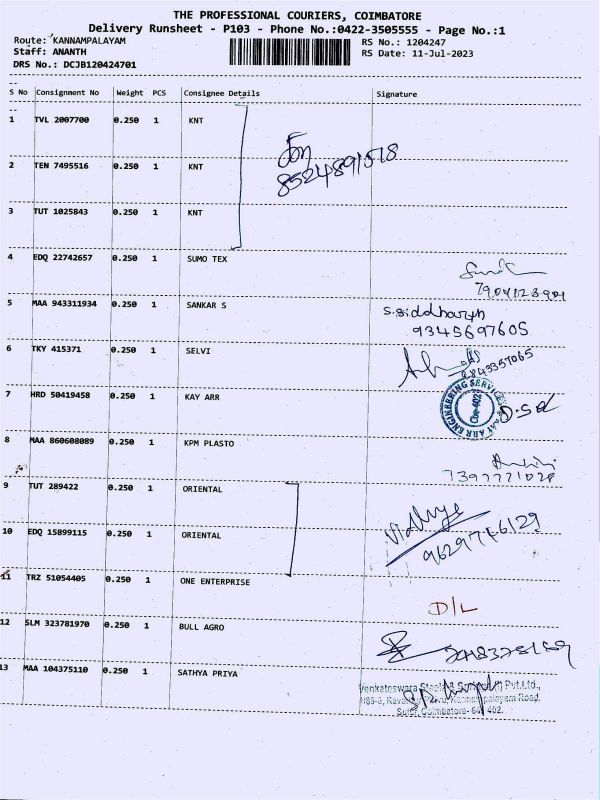 THE PROFESSIONAL COURIERS, COIMBATORE
Delivery Runsheet - P103 - Phone No.:0422-3505555 - Page No.:1
Route: KANNAMPALAYAM
RS No.: 1204247
Staff: ANANTH
RS Date: 11-Jul-2023
DRS No.: DCJB120424701
S No Consignment No Weight PCS Consignee Details Signature
1 TVL 2007700 0.250 1 KNT
8524891518
2 TEN 7495516 0.250 1 KNT
3 TUT 1025843 0.250 1 KNT
4 EDQ 22742657 0.250 1 SUMO TEX
5 MAA 943311934 0.250 1 SANKAR S
S.Siddharth
9345697605
6 TKY 415371 0.250 1 SELVI
7 HRD 50419458 0.250 1 KAY ARR
KAY ARR ENGINEERING SERVICE
8 MAA 860608089 0.250 1 KPM PLASTO
9 TUT 289422 0.250 1 ORIENTAL
Vidhya
9629746129
10 EDQ 15899115 0.250 1 ORIENTAL
11 TRZ 51054405 0.250 1 ONE ENTERPRISE
D/L
12 SLM 323781970 0.250 1 BULL AGRO
13 MAA 104375110 0.250 1 SATHYA PRIYA
Venkateswara Pvt.Ltd.,
Road,
Sulur, Coimbatore- 641 402.